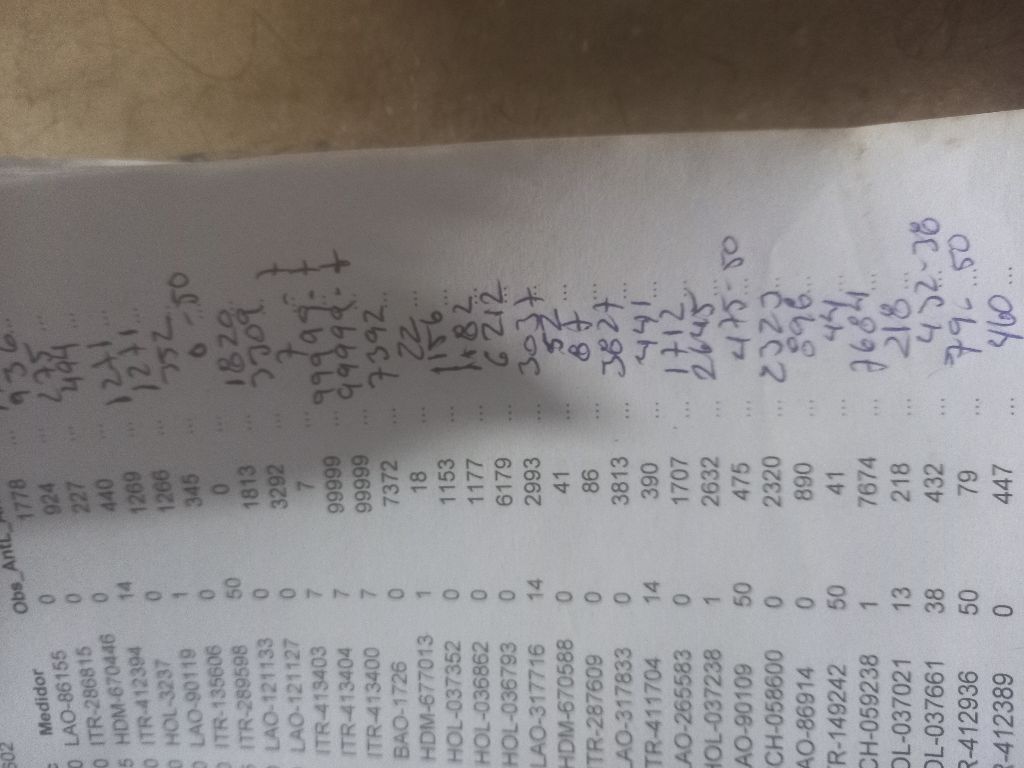 Medidor Obs_Antl
LAO-86155 0 1778 ...
ITR-286815 0 924 ... 936 ...
HDM-670446 0 227 ... 275 ...
ITR-412394 14 440 ... 494 ...
HOL-3237 0 1269 ... 1271 ...
LAO-90119 1 1266 ... 1271 ...
ITR-135606 0 345 ... 352 ...
ITR-289598 50 0 ... 0 - 50
LAO-121133 0 1813 ... 1820 ...
LAO-121127 0 3292 ... 3309 ...
ITR-413403 7 7 ... 7 7
ITR-413404 7 99999 ... 99999 - 7
ITR-413400 7 99999 ... 99999 - 7
BAO-1726 0 7372 ... 7392 ...
HDM-677013 1 18 ... 22 ...
HOL-037352 0 1153 ... 1156 ...
HOL-036862 0 1177 ... 1182 ...
HOL-036793 0 6179 ... 6212 ...
LAO-317716 14 2993 ... 3037 ...
HDM-670588 0 41 ... 52 ...
ITR-287609 0 86 ... 87 ...
LAO-317833 0 3813 ... 3827 ...
TR-411704 14 390 ... 441 ...
AO-265583 0 1707 ... 1712 ...
HOL-037238 1 2632 ... 2645 ...
AO-90109 50 475 ... 475 - 50
CH-058600 0 2320 ... 2323 ...
AO-86914 0 890 ... 896 ...
R-149242 50 41 ... 44 ...
CH-059238 1 7674 ... 7684 ...
OL-037021 13 218 ... 218 ...
OL-037661 38 432 ... 432 - 38
R-412936 50 79 ... 50
R-412389 0 447 ... 460 ...